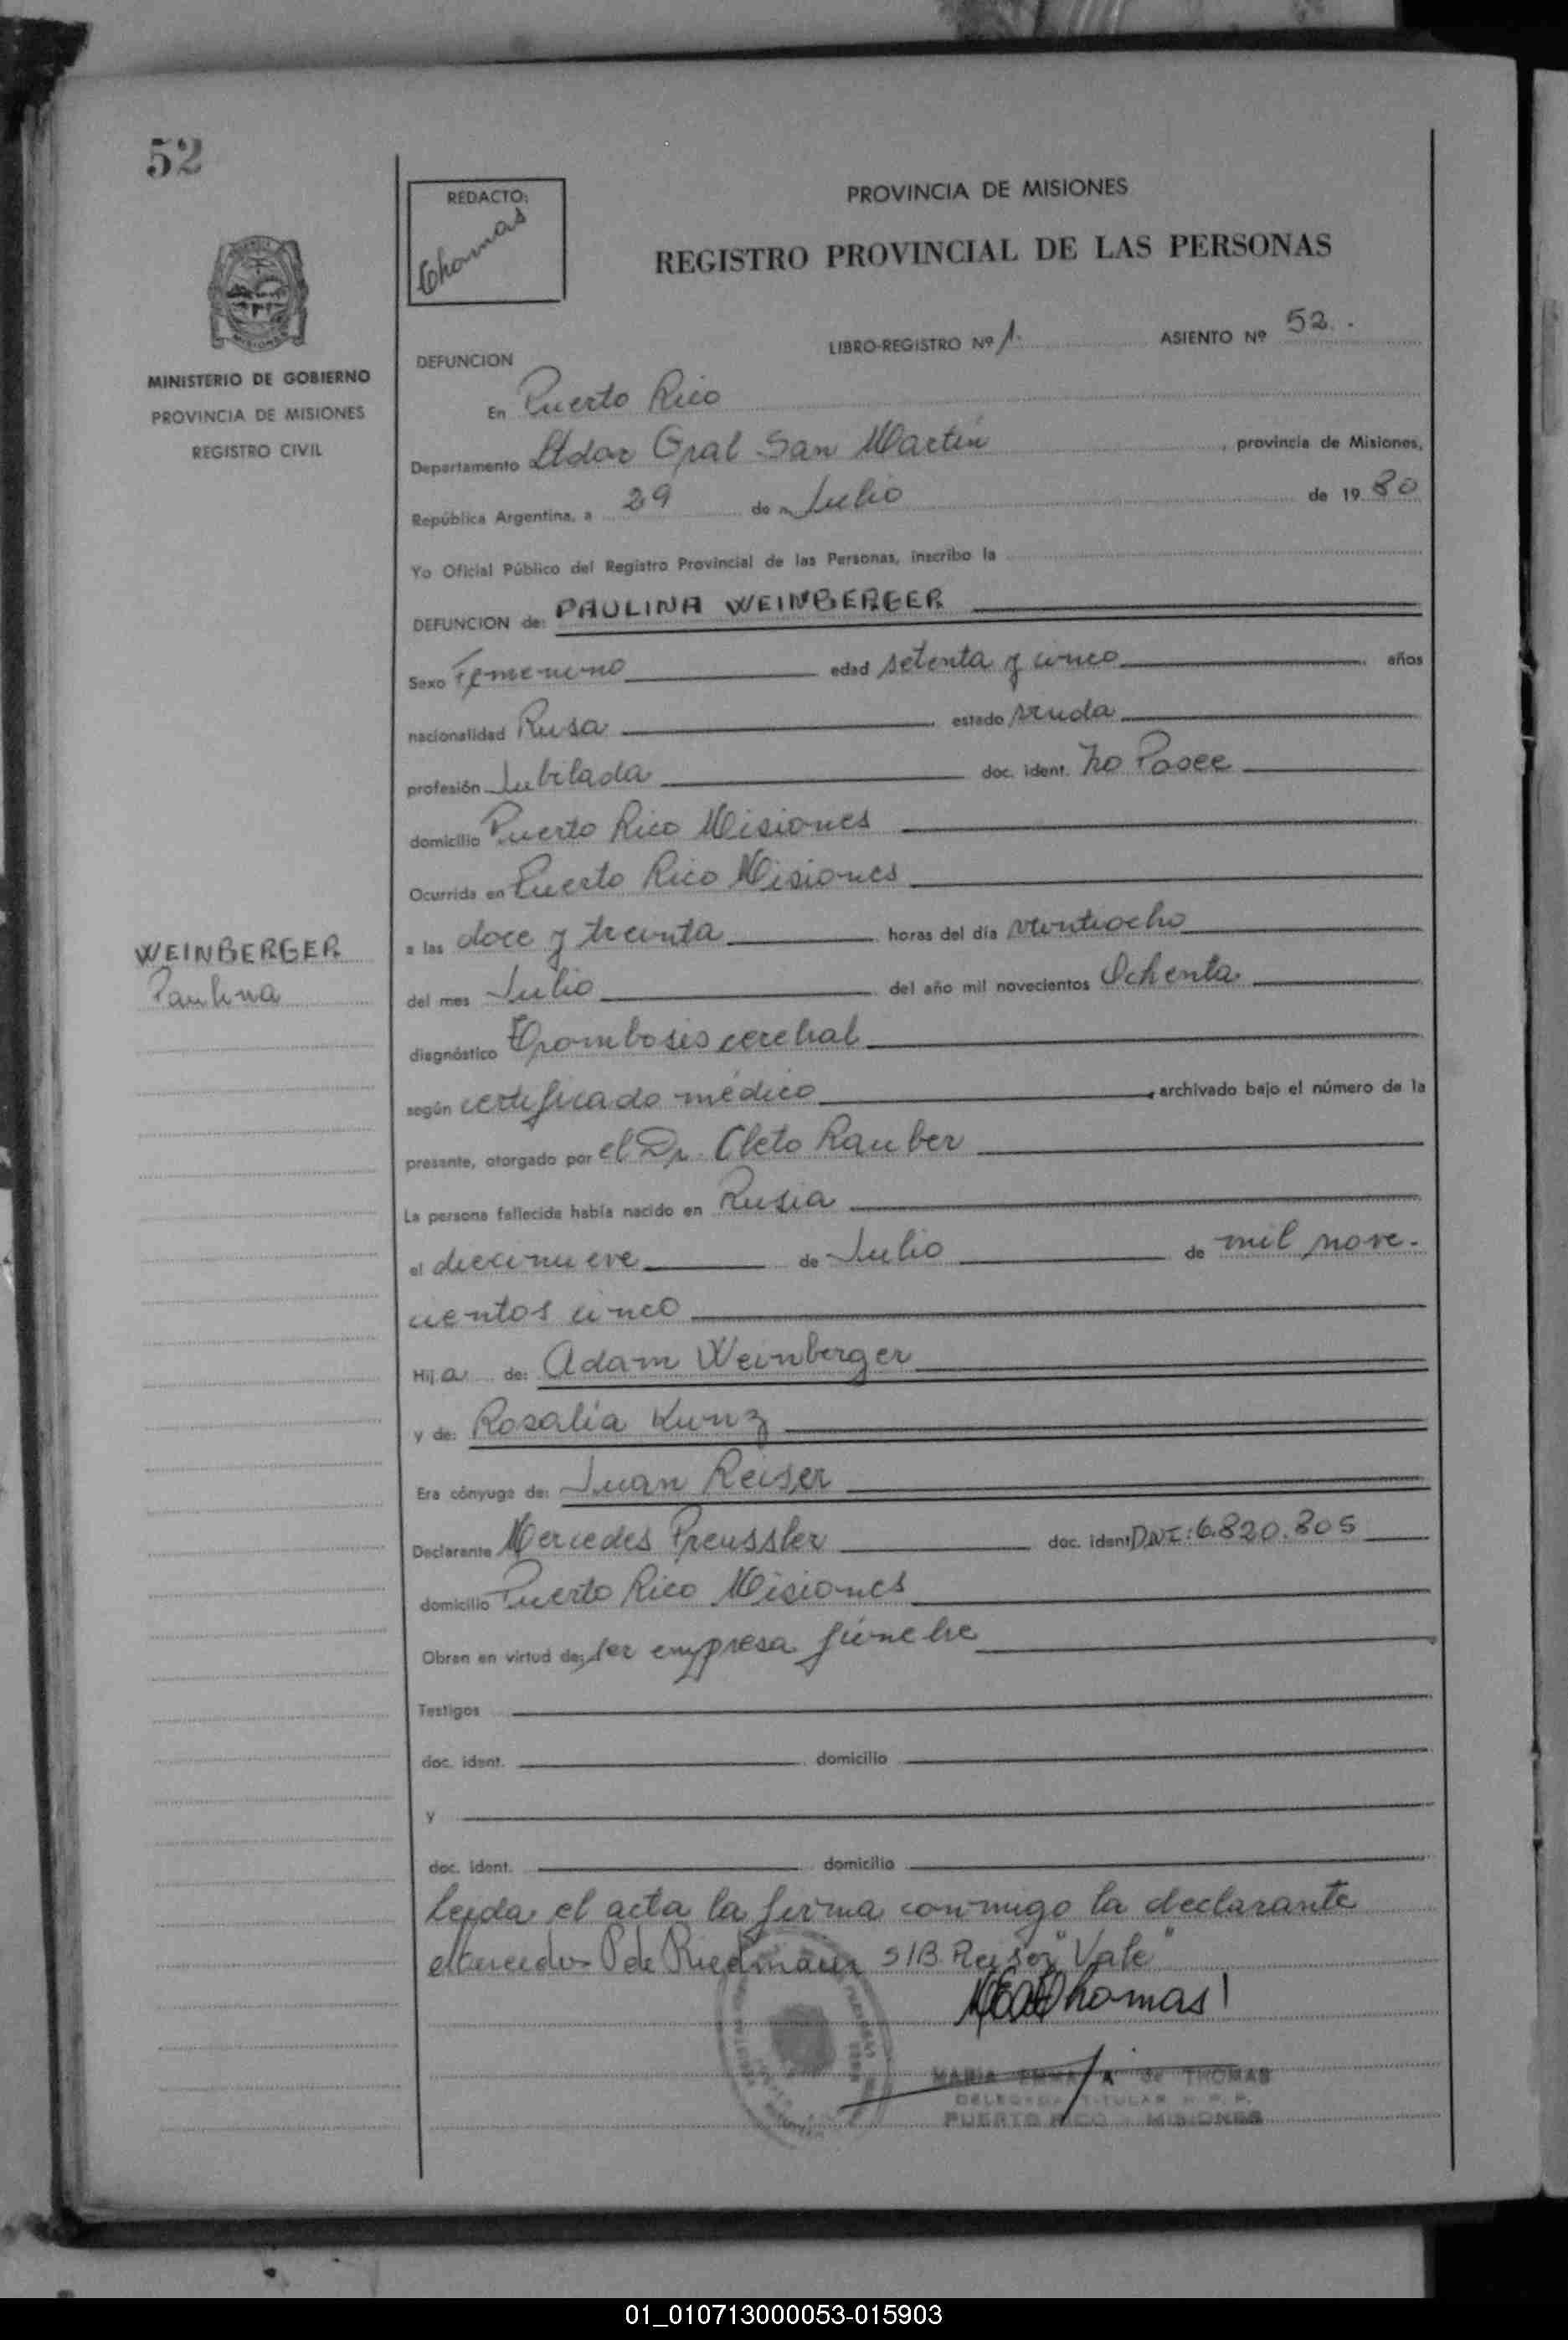 52
REDACTO:
Thomas
PROVINCIA DE MISIONES
REGISTRO PROVINCIAL DE LAS PERSONAS
MINISTERIO DE GOBIERNO
PROVINCIA DE MISIONES
REGISTRO CIVIL
LIBRO-REGISTRO Nº 1. ASIENTO Nº 52.
DEFUNCION
En Puerto Rico
Departamento Ltdor Gral San Martín, provincia de Misiones,
República Argentina, a 29 de Julio de 1980
Yo Oficial Público del Registro Provincial de las Personas, inscribo la
DEFUNCION de: PAULINA WEINBERGER
Sexo Femenino edad setenta y cinco años
nacionalidad Rusa estado viuda
profesión Jubilada doc. ident. No Posee
domicilio Puerto Rico Misiones
Ocurrida en Puerto Rico Misiones
WEINBERGER
Paulina
a las doce y treinta horas del día veintiocho
del mes Julio del año mil novecientos Ochenta
diagnóstico Trombosis cerebal
según certificado médico, archivado bajo el número de la
presente, otorgado por el Dr. Cleto Rauber
La persona fallecida había nacido en Rusia
el diecinueve de Julio de mil nove-
cientos cinco
Hija de: Adam Weinberger
y de: Rosalía Kunz
Era cónyuge de: Juan Reiser
Declarante Mercedes Preussler doc. ident DNI: 6.820.805
domicilio Puerto Rico Misiones
Obran en virtud de: ser empresa fúnebre
Testigos
doc. ident. domicilio
y
doc. ident. domicilio
Leída el acta la firma conmigo la declarante
P de S/B. "Vale"
Thomas
MARIA de THOMAS
DELEGADA TITULAR R. P. P.
PUERTO RICO - MISIONES
01_010713000053-015903